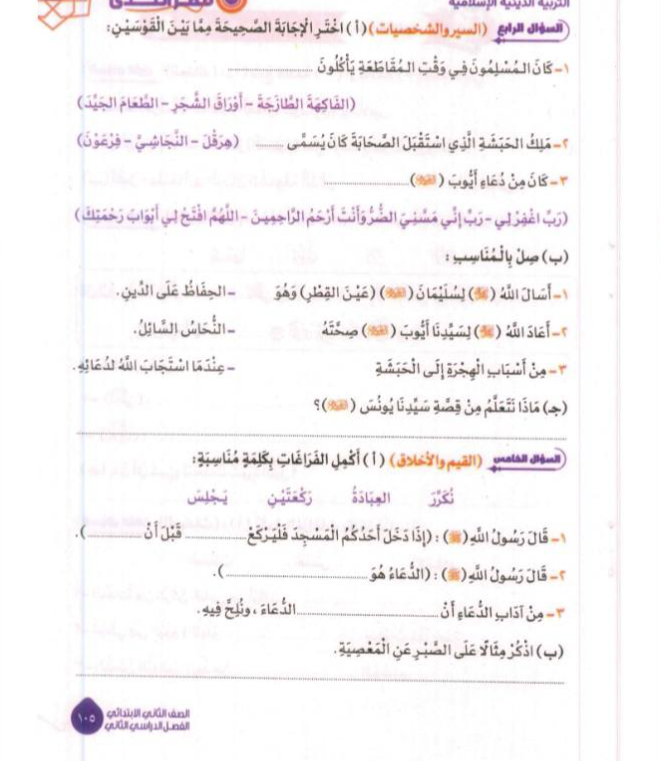 التربية الدينية الإسلامية
السؤال الرابع (السير والشخصيات) (أ) اخْتَرِ الْإِجَابَةَ الصَّحِيحَةَ مِمَّا بَيْنَ الْقَوْسَيْنِ:
١- كَانَ الْمُسْلِمُونَ فِي وَقْتِ الْمُقَاطَعَةِ يَأْكُلُونَ ............
(الْفَاكِهَةَ الطَّازَجَةَ - أَوْرَاقَ الشَّجَرِ - الطَّعَامَ الْجَيِّدَ)
٢- مَلِكُ الْحَبَشَةِ الَّذِي اسْتَقْبَلَ الصَّحَابَةَ كَانَ يُسَمَّى ............ (هِرَقْلَ - النَّجَاشِيَّ - فِرْعَوْنَ)
٣- كَانَ مِنْ دُعَاءِ أَيُّوبَ () ............
(رَبِّ اغْفِرْ لِي - رَبِّ إِنِّي مَسَّنِيَ الضُّرُّ وَأَنْتَ أَرْحَمُ الرَّاحِمِينَ - اللَّهُمَّ افْتَحْ لِي أَبْوَابَ رَحْمَتِكَ)
(ب) صِلْ بِالْمُنَاسِبِ:
١- أَسَالَ اللَّهُ () لِسُلَيْمَانَ () (عَيْنَ الْقِطْرِ) وَهُوَ - الحِفَاظُ عَلَى الدِّينِ.
٢- أَعَادَ اللَّهُ () لِسَيِّدِنَا أَيُّوبَ () صِحَّتَهُ - النُّحَاسُ السَّائِلُ.
٣- مِنْ أَسْبَابِ الْهِجْرَةِ إِلَى الْحَبَشَةِ - عِنْدَمَا اسْتَجَابَ اللَّهُ لِدُعَائِهِ.
(جـ) مَاذَا تَتَعَلَّمُ مِنْ قِصَّةِ سَيِّدِنَا يُونُسَ ()؟
السؤال الخامس (القيم والأخلاق) (أ) أَكْمِلِ الْفَرَاغَاتِ بِكَلِمَةٍ مُنَاسِبَةٍ:
نُكَرِّرَ العِبَادَةُ رَكْعَتَيْنِ يَجْلِسَ
١- قَالَ رَسُولُ اللَّهِ (ﷺ): (إِذَا دَخَلَ أَحَدُكُمُ الْمَسْجِدَ فَلْيَرْكَعْ ............ قَبْلَ أَنْ ............).
٢- قَالَ رَسُولُ اللَّهِ (ﷺ): (الدُّعَاءُ هُوَ ............).
٣- مِنْ آدَابِ الدُّعَاءِ أَنْ ............ الدُّعَاءَ، وَنُلِحَّ فِيهِ.
(ب) اذْكُرْ مِثَالًا عَلَى الصَّبْرِ عَنِ الْمَعْصِيَةِ.
الصف الثاني الابتدائي
الفصل الدراسي الثاني
١٠٥